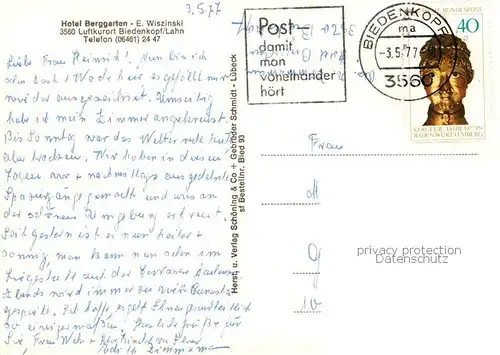 3.5.77
Hotel Berggarten - E. Wiszinski
3560 Luftkurort Biedenkopf/Lahn
Telefon (06461) 24 47
Liebe Frau Heinrich! Nun bin ich
schon fast 1 Woche hier es gefällt mir
wieder ausgezeichnet. Umseitig
habe ich mein Zimmer angekreuzt.
Bis Sonntag war das Wetter recht kühl
aber trocken. Wir haben in diesen
Tagen vor + nachmittags ausgedehnte
Spaziergänge gemacht und uns an
der schönen Umgebung erfreut.
Seit gestern ist es nun heiter +
sonnig, man kann nun schon im
Liegestuhl auf der Terrasse
Abends wird immer
gespielt. Ich hoffe, es geht Ihnen
so einigermaßen. Herzliche Grüße für
Sie Frau
Herst. u. Verlag Schöning & Co + Gebrüder Schmidt - Lübeck
sf Bestellnr. Bied 93
Post-
damit
man
voneinander
hört
BIEDENKOPF
ma
-3.5.77
3560
DEUTSCHE BUNDESPOST
40
STAUFER-JAHR 1977 IN
BADEN-WÜRTTEMBERG
Frau
M
G
10
privacy protection
AnsichtsKarten